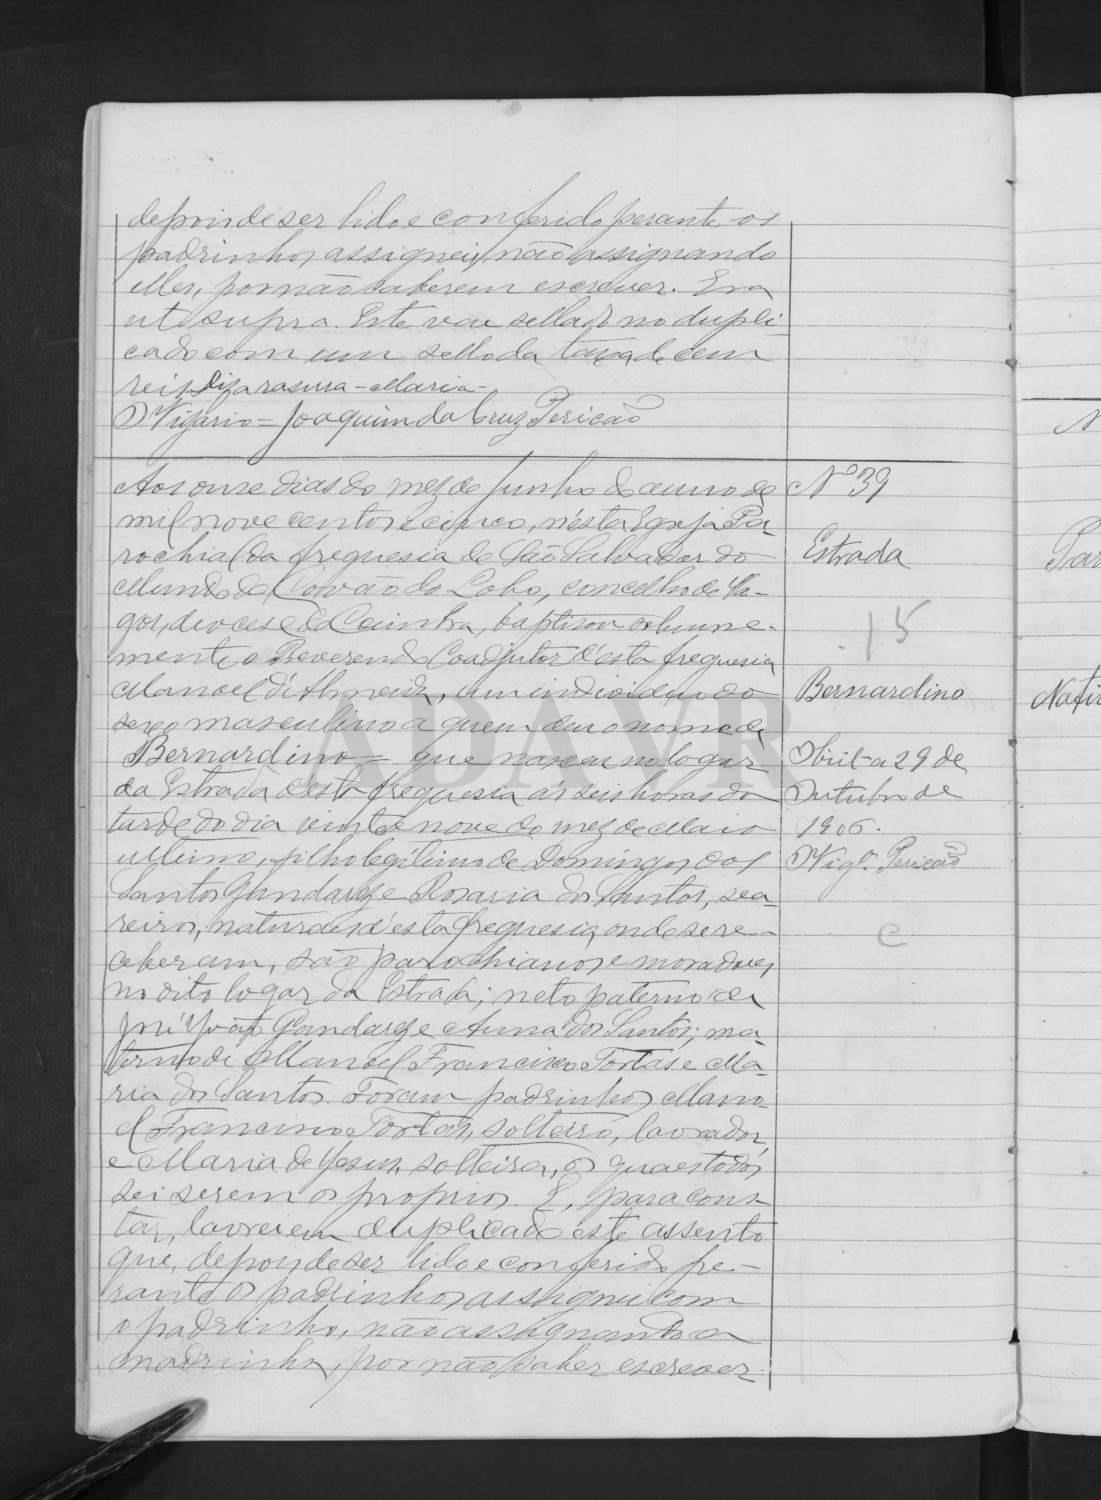 depois de ser lido e conferido perante os
padrinhos assignei, não assignando
elles, por não saberem escrever. Era
ut supra. Este vae sellado no dupli-
cado com um sello da taxa de cem
reis. Diz a rasura - Maria -
O Vigario = Joaquim da Cruz Pericão
Aos onze dias do mez de Junho do anno de
mil nove centos e cinco, n'esta Egreja Pa-
rochial da freguesia de São Salvador do
Mundo de Covão do Lobo, concelho de Va-
gos, diocese de Coimbra, baptisou solemne-
mente o Reverendo Coadjutor d'esta freguesia
Manoel d'Almeida, um individuo do
sexo masculino a quem deu o nome de
Bernardino = que nasceu no logar
da Estrada d'esta freguesia ás seis horas da
tarde do dia vinte e nove do mez de Maio
ultimo, filho legitimo de Domingos dos
Santos Gandarez e Rosaria dos Santos, sea-
reiros, naturaes d'esta freguesia, onde se re-
ceberam, são parochianos e moradores
no dito logar da Estrada; neto paterno de
José João Gandarez e Anna dos Santos; ma-
terno de Manoel Francisco Tortas e Ma-
ria dos Santos. Foram padrinhos Mano-
el Francisco Tortas, solteiro, lavrador,
e Maria de Jesus, solteira, os quaes todos
sei serem os proprios. E, para cons-
tar, lavrei em duplicado este assento
que, depois de ser lido e conferido pe-
rante os padrinhos assignei com
o padrinho, não assignando a
madrinha, por não saber escrever.
Nº 39
Estrada
15
Bernardino
Obiit a 29 de
Outubro de
1906.
O Vigº. Pericão
C
N
Par
Nati
ADAVR